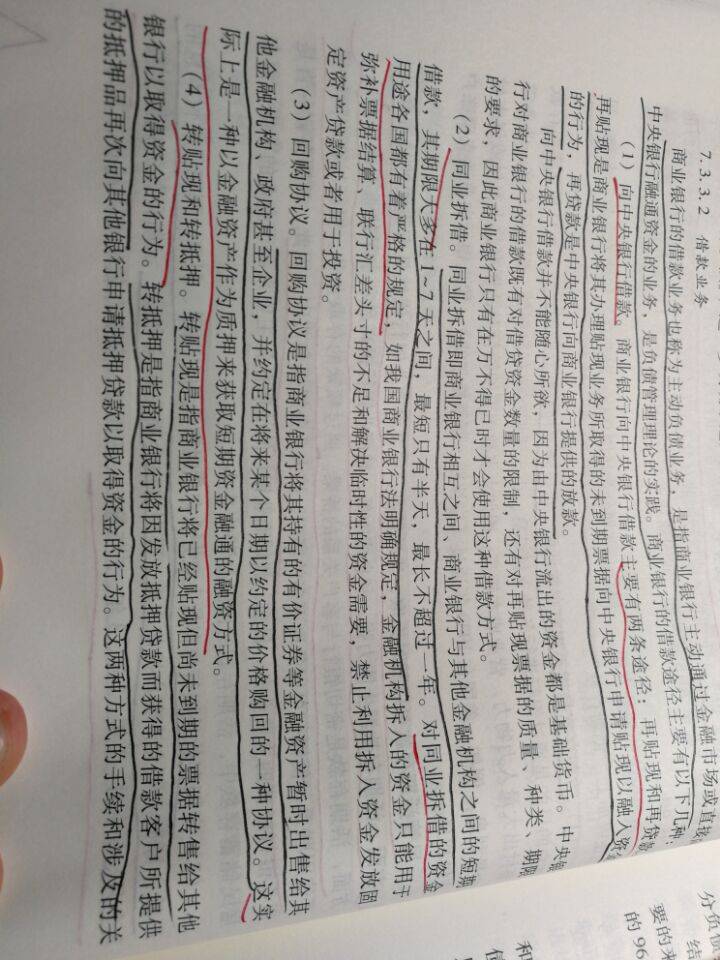 7.3.3.2 借款业务
商业银行的借款业务也称为主动负债业务，是指商业银行主动通过金融市场或直接
中央银行融通资金的业务，是负债管理理论的实践。商业银行的借款途径主要有以下几种：
（1）向中央银行借款。商业银行向中央银行借款主要有两条途径：再贴现和再贷
再贴现是商业银行将其办理贴现业务所取得的未到期票据向中央银行申请贴现以融入资
的行为，再贷款是中央银行向商业银行提供的放款。
向中央银行借款并不能随心所欲，因为由中央银行流出的资金都是基础货币。中央
行对商业银行的借款既有对借贷资金数量的限制，还有对再贴现票据的质量、种类、期限
的要求，因此商业银行只有在万不得已时才会使用这种借款方式。
（2）同业拆借。同业拆借即商业银行相互之间、商业银行与其他金融机构之间的短期
借款，其期限大多在1~7天之间，最短只有半天，最长不超过一年。对同业拆借的资金
用途各国都有着严格的规定，如我国商业银行法明确规定，金融机构拆入的资金只能用于
弥补票据结算、联行汇差头寸的不足和解决临时性的资金需要，禁止利用拆入资金发放固
定资产贷款或者用于投资。
（3）回购协议。回购协议是指商业银行将其持有的有价证券等金融资产暂时出售给其
他金融机构、政府甚至企业，并约定在将来某个日期以约定的价格购回的一种协议。这实
际上是一种以金融资产作为质押来获取短期资金融通的融资方式。
（4）转贴现和转抵押。转贴现是指商业银行将已经贴现但尚未到期的票据转售给其他
银行以取得资金的行为。转抵押是指商业银行将因发放抵押贷款而获得的借款客户所提供
的抵押品再次向其他银行申请抵押贷款以取得资金的行为。这两种方式的手续和涉及的关
分负债
结
要的来
的96
和